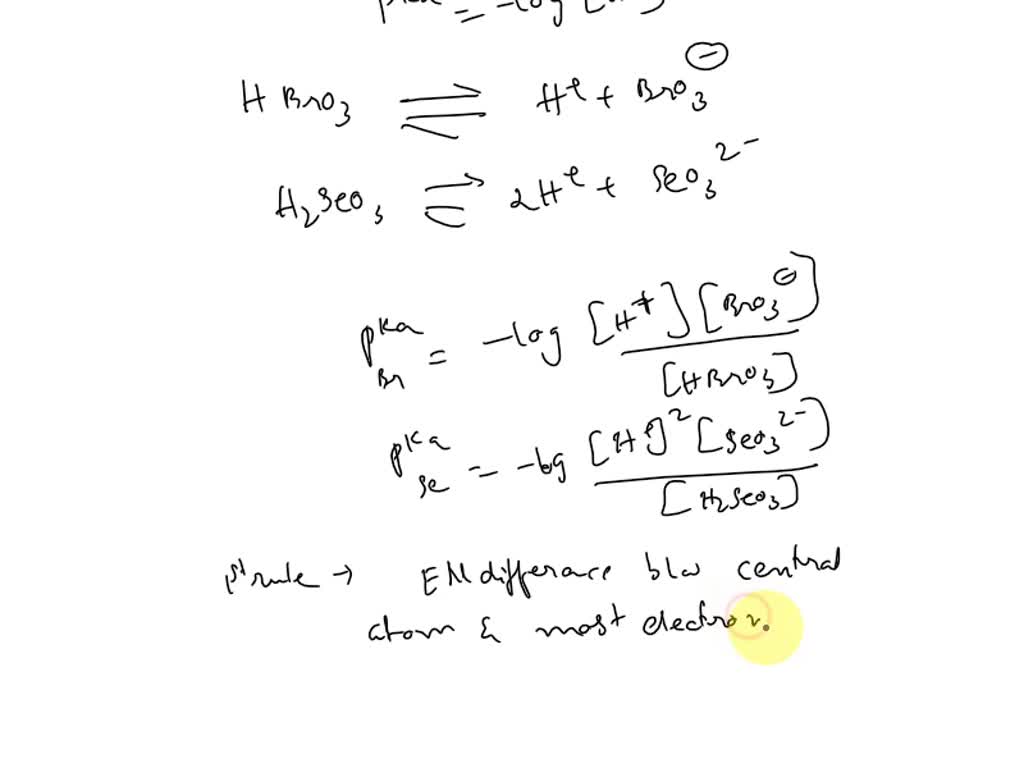 pKa = -log [
HBrO3 ⇌ H⊕ + BrO3⊖
H2SeO3 ⇌ 2H⊕ + SeO3 2-
pKa Br = -log [H+][BrO3⊖] / [HBrO3]
pKa Se = -log [H⊕]2[SeO3 2-] / [H2SeO3]
1st rule → EN differace b/w central
atom & most electron.